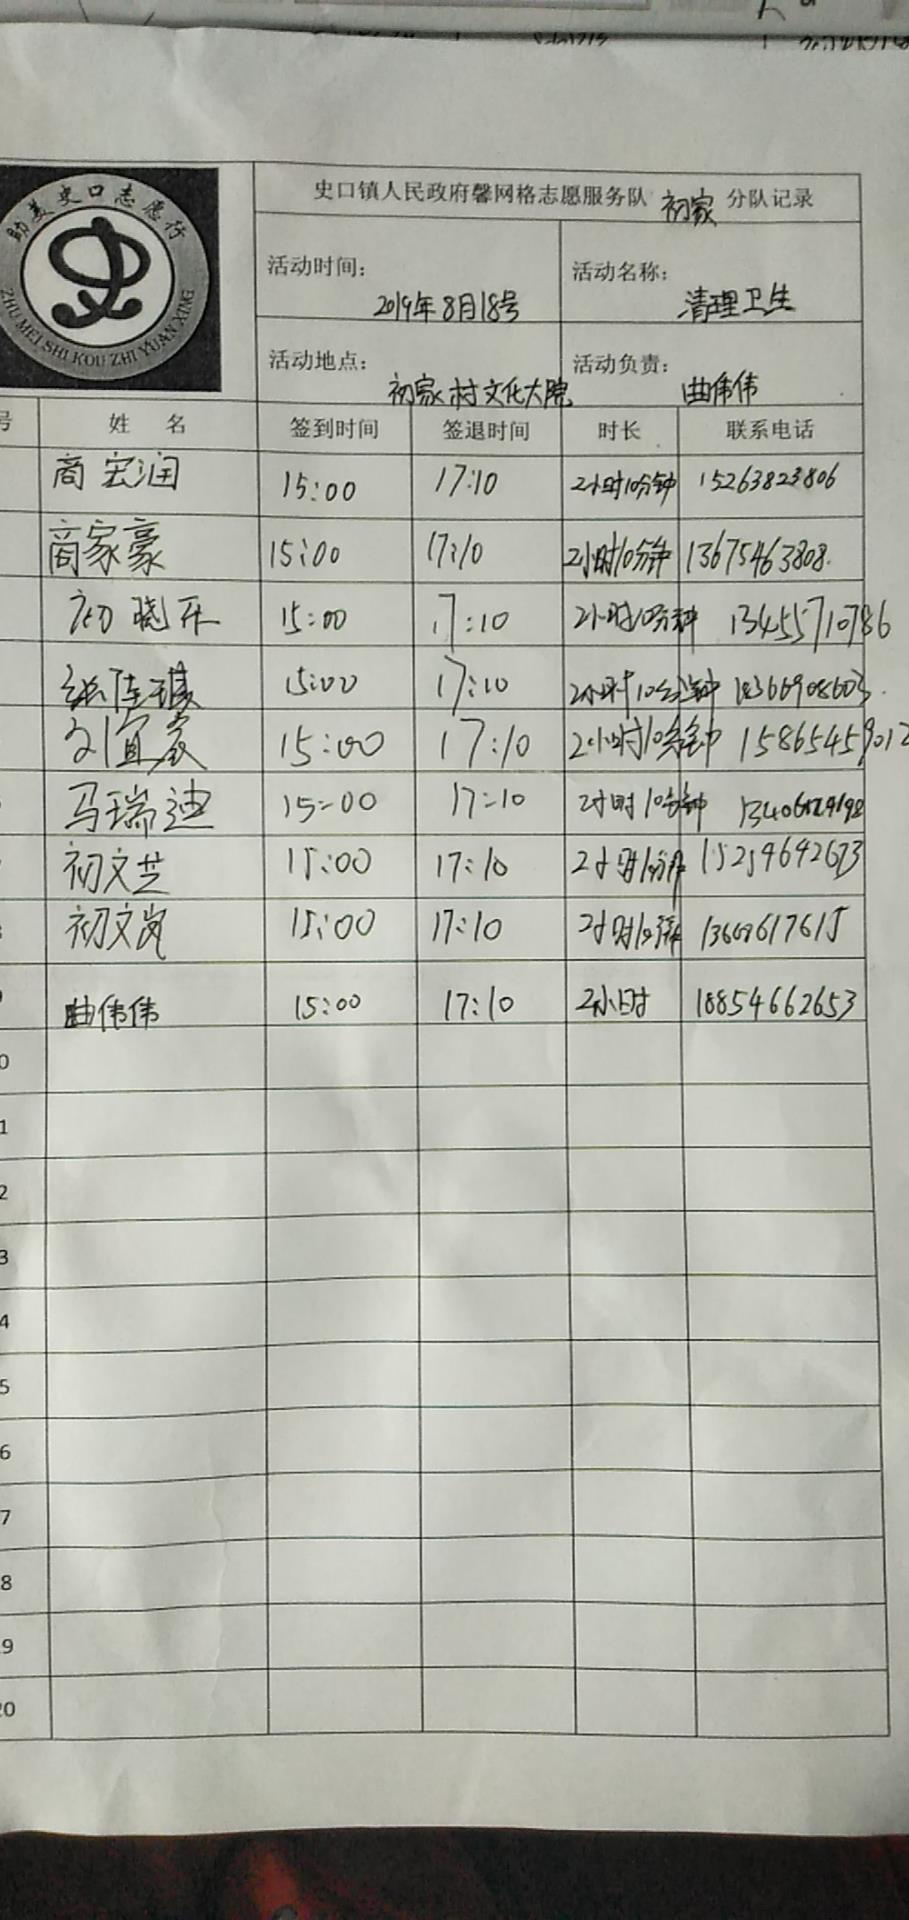 助美史口志愿行
ZHU MEI SHI KOU ZHI YUAN XING
史口镇人民政府馨网格志愿服务队 初家 分队记录
活动时间： 2019年8月18号
活动名称： 清理卫生
活动地点： 初家村文化大院
活动负责： 曲伟伟
号 姓 名 签到时间 签退时间 时长 联系电话
商宏润 15:00 17:10 2小时10分钟 15263823806
商家豪 15:00 17:10 2小时10分钟 13675463808.
初晓乐 15:00 17:10 2小时10分钟 13455710786
张佳琪 15:00 17:10 2小时10分钟
刘宜家 15:00 17:10 2小时10分钟
马瑞迪 15:00 17:10 2小时10分钟
初文芝 15:00 17:10
初文岚 15:00 17:10
9 曲伟伟 15:00 17:10 2小时 18854662653
0
1
2
3
4
5
6
7
8
9
20